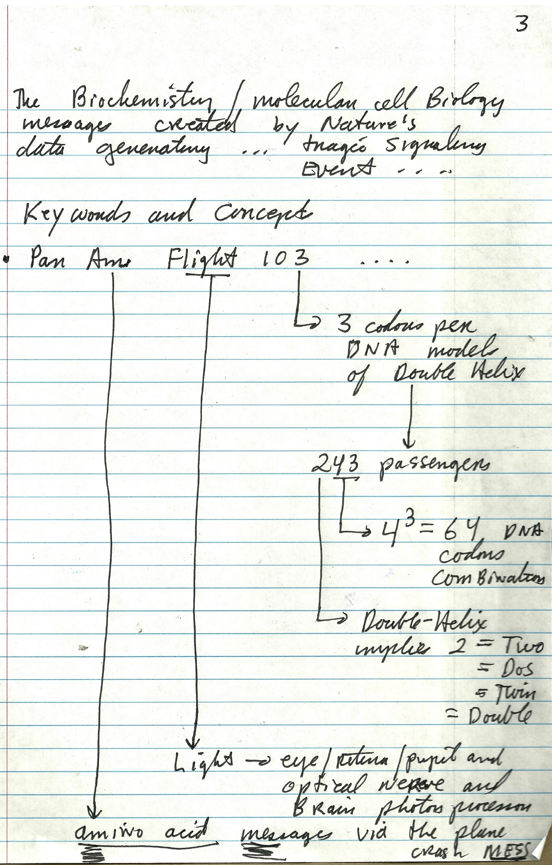 3
The Biochemistry / molecular cell Biology
messages created by Nature's
data generating ... tragic Signaling
Event ....
Key words and Concepts
• Pan Am Flight 103 ....
3 codons per
DNA models
of Double Helix
243 passengers
4³ = 64 DNA
codons
comBinations
Double-Helix
implies 2 = Two
= Dos
= Twin
= Double
Light → eye/retina/pupil and
optical nerve and
BRain photon processor
amino acid messages via the plane
crash MESS